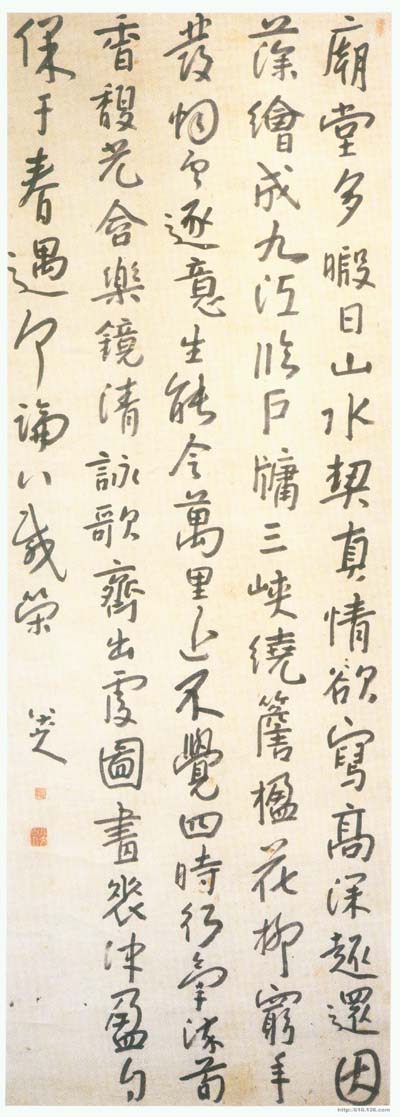 廟堂多暇日山水契真情欲寫高深趣還因
藻繪成九江臨戶牖三峽繞簷楹花柳窮年
發烟雲逐意生能令萬里近不覺四時行氣染荀
香馥光含樂鏡清詠歌齊出處圖畫表沖盈自
保千春遇寧論八載榮
八大山人